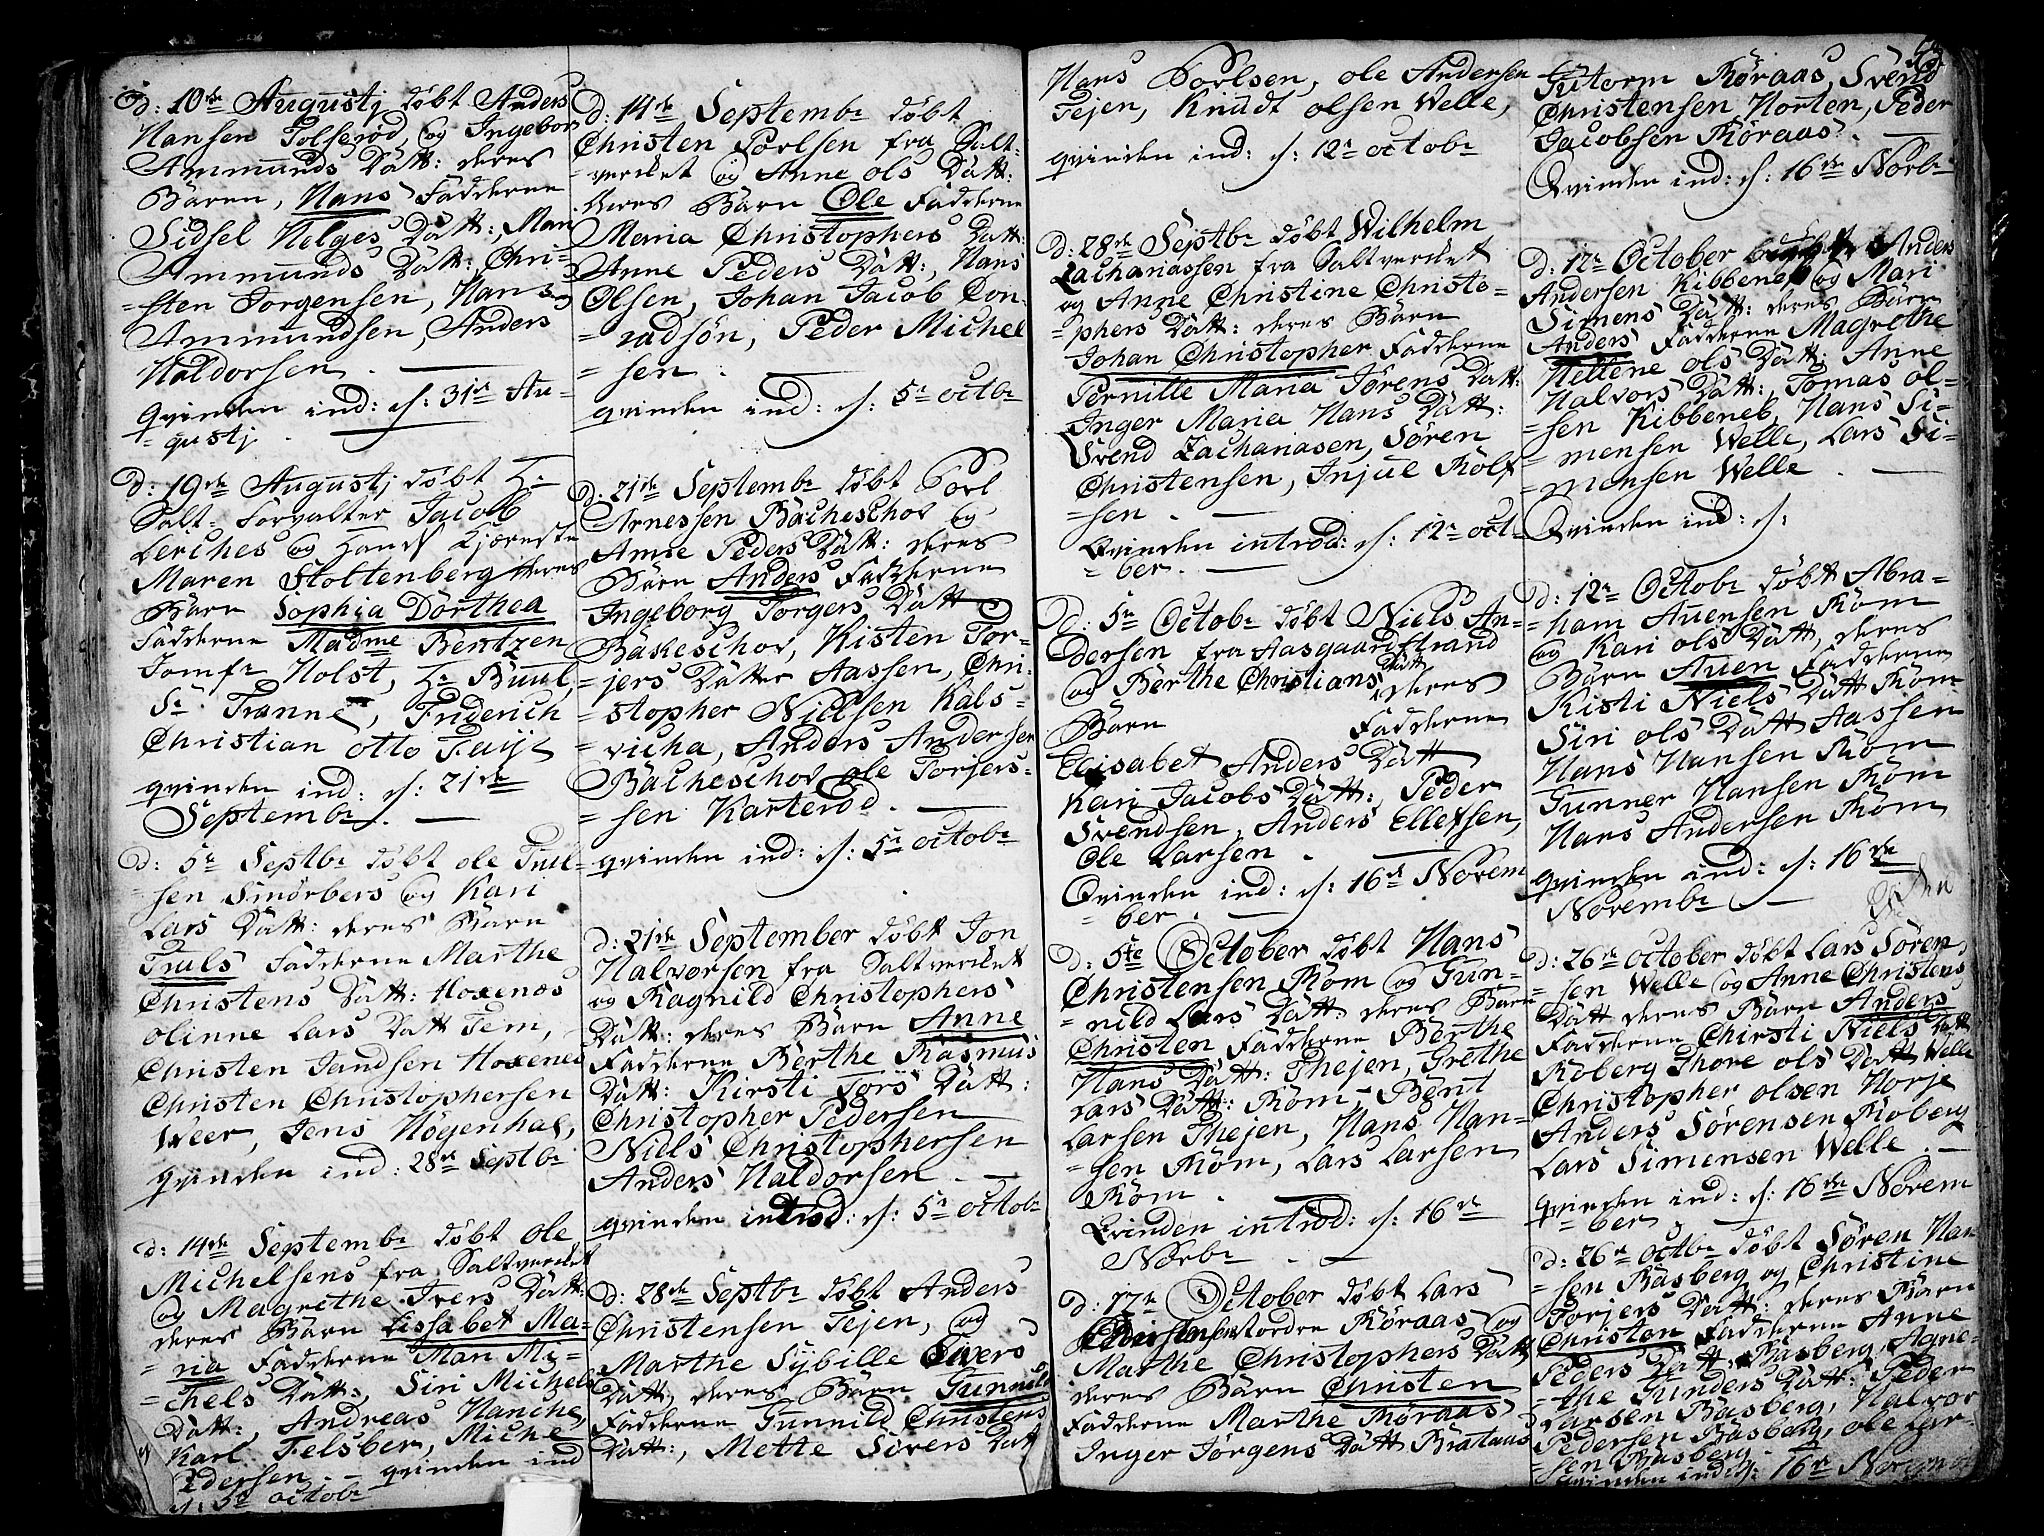 d: 10de Augustj døbt Anders
Hansen Tolserød og Ingebor
Ammunds Datt: deres
Baren, Hans Fadderne
Sidsel Helges Datt:, Mari
Ammunds Datt: Chri-
=sten Jorgensen, Hans
Ammundsen, Anders
Haldorsen.
qvinden ind: d: 31te Au-
=gustj
d: 19de Augustj døbt Hr
Salt-Forvalter Jacob
Lerches og Hands Kjæreste
Maren Stoltenberg deres
Barn Sophia Dorthea
Fadderne Madme Bentzen
Jomfr Holst, Hr Buul,
Sr Tranne, Friderich
Christian otto Faije
qvinden ind: d: 21de
Septembr.
d: 5te Septbr døbt ole Trul-
=sen Smørberg og Kari
Lars Datt: deres Barn
Truls Fadderne Marthe
Christens Datt: Hoxenes
olinne Lars Datt Tem,
Christen Jandsen Hoxenes
Christen Christophersen
Weer, Jens Høgenhal,
qvinden ind: 28de Septbr
d: 14de Septembr døbt ole
Michelsens fra Saltverket
og Magrethe Ivers Datt:
deres Barn Lissabet Ma-
=ria Fadderne Mari Mi-
=chels Datt:, Siri Michels
Datt:, Andreas Hanche,
Karl Felsber, Michel
Pedersen. - qvinden ind
d: 5te octobr
d: 14de Septembr døbt
Christen Porlsen fra Salt-
verket og Anne ols Datt:
deres Barn Ole Fadderne
Maria Christophers Datt:
Anne Peders Datt:, Hans
Olsen, Johan Jacob Con-
=radsøn, Peder Michel
=sen.
qvinden ind: d: 5te octobr
d: 21de Septembr døbt Porl
Arnessen Bacheschov og
Anne Peders Datt: deres
Barn Anders Fadderne
Ingeborg Torgers Datt
Bakeschov, Kisten Tor-
=jers Datter Aassen, Chri-
=stopher Nielsen Kals-
=vicha, Anders Andersen
Bacheschov ole Torgers-
=sen Karterød.
qvinden ind: d: 5te octobr
d: 21de September døbt Jon
Halvorsen fra Saltverket
og Ragnild Christophers
Datt: deres Barn Anne
Fadderne Berthe Rasmus
Datt: Kirsti Tors Datt:
Christopher Pedersen
Niels Christophersen
Anders Haldorsen.
qvinden introd: d: 5te octobr
d: 28de Septbr døbt Anders
Christensen Tejen, og
Marthe Sybille Sivers
Datt, deres Barn Gunnild
Fadderne Gunnild Christens
Datt:, Mette Sørens Datt
Hans Porlsen, ole Andersen
Tejen, Knudt olsen Welle,
qvinden ind: d: 12te octobr
d: 28de Septbr døbt Wilhelm
Zachariassen fra Saltverket
og Anne Christine Christo-
=phers Datt: deres Barn
Johan Christopher Fadderne
Pernille Maria Jørens Datt:
Inger Maria Hans Datt:
Svend Zachariasen, Søren
Christensen, Injul Rolf
=sen.
Qvinden introd: d: 12te octo
=ber.
d: 5te Octobr døbt Niels An-
dersen fra Aasgaardstrand
og Berthe Christians Datt
deres
Barn Fadderne
Elisabet Anders Datt
Kari Jacobs Datt:, Peder
Svendsen, Anders Ellefsen,
Ole Larsen.
Qvinden ind: d: 16de Novem
=ber.
d: 5te October døbt Hans
Christensen Røm og Gun-
=nild Lars Datt deres Barn
Christen, Fadderne Berthe
Hans Datt: Thejen, Grethe
Lars Datt: Røm, Bent
Larsen Thejen, Hans Han-
=sen Røm, Lars Larsen
Røm.
Qvinden introd: d: 16de
Novbr
d: 12te October døbt Lars
Røraas og
Marthe Christophers Datt
deres Barn Christen
Fadderne Marthe Røraas
Inger Jørgens Datt Brataas
Gutorm Røraas, Svend
Christensen Horten, Peder
Jacobsen Røraas.
Qvinden ind: d: 16de Novbr
d: 12te October døbt Anders
Andersen Kibbeneb og Mari
Simens Datt: deres Barn
Anders Fadderne Magrethe
Hellene ols Datt: Anne
Halvors Datt:, Tomas ol-
=sen Kibbeneb, Hans Si-
=mensen Welle, Lars Si-
=mensen Welle.
Qvinden ind: d:
d: 12te Octobr døbt Abra-
=ham Auensen Røm
og Kari ols Datt, deres
Barn Auen Fadderne
Kisti Niels Datt Røm
Siri ols Datt Aassen
Hans Hansen Røm
Gunner Hansen Røm
Hans Andersen Røm
qvinden ind: d: 16de
Novembr
d: 26de october døbt Lars Søren
=sen Welle og Anne Christens
Datt deres Barn Anders
Fadderne Chirsti Niels Datt
Roberg Thore ols Datt Welle
Christopher olsen Horje
Anders Sørensen Roberg
Lars Simensen Welle.
qvinden ind: d: 16de Novem
=ber
d: 26de octbr døbt Søren Han
=sen Basberg og Christine
Torjers Datt: deres Barn
Christen Fadderne Anne
Peders Datt, Basberg, Agne-
=the Gunders Datt: Peder
Larsen Basberg, Halvor
Pedersen Basberg, ole Lar-
=sen Basberg.
qvinden ind: d: 16de Novembr